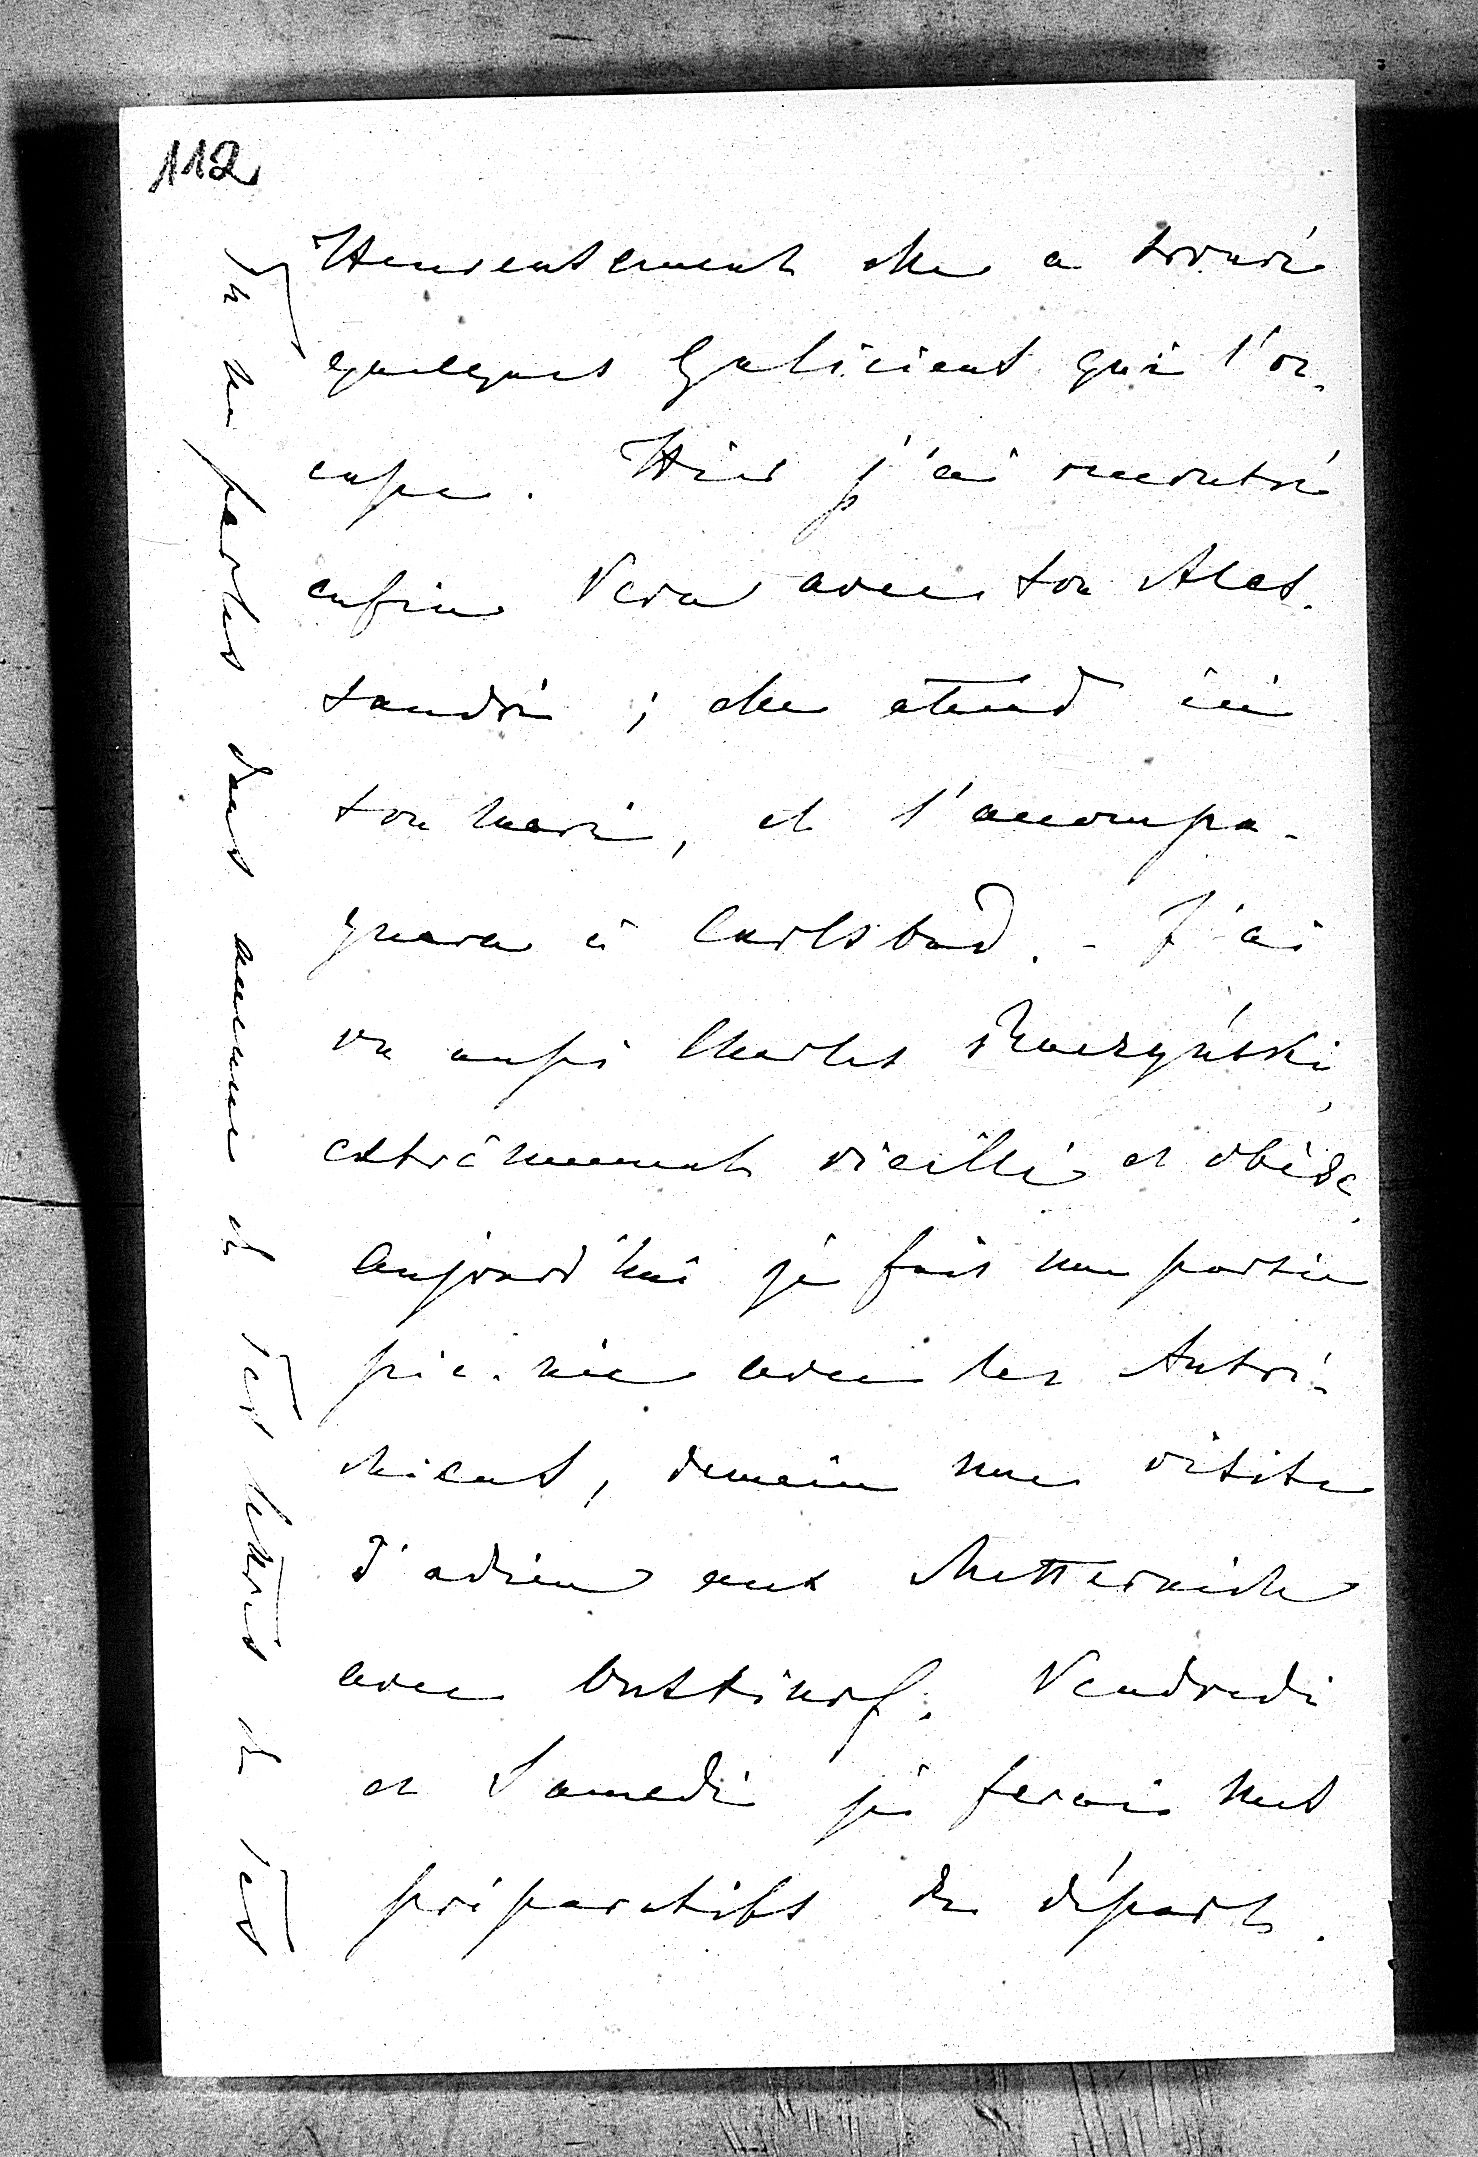 112
Heureusement elle a trouvé
quelques Galiciens qui l'oc-
cupe. Hier j'ai rencontré
enfin Vera avec son Ales-
sandri ; elle attend ici
son mari, et l'accompa-
gnera à Carlsbad. - J'ai
vu aussi Charles Raczyński,
extrêmement vieilli et obèse.
Aujourd'hui je fais une partie
pic-nic avec les Autri-
chiens, demain une visite
d'adieu aux Metternich
avec . Vendredi
et Samedi je ferai mes
préparatifs de départ.
Tu ne parles dans aucune de Tes lettres de Tes